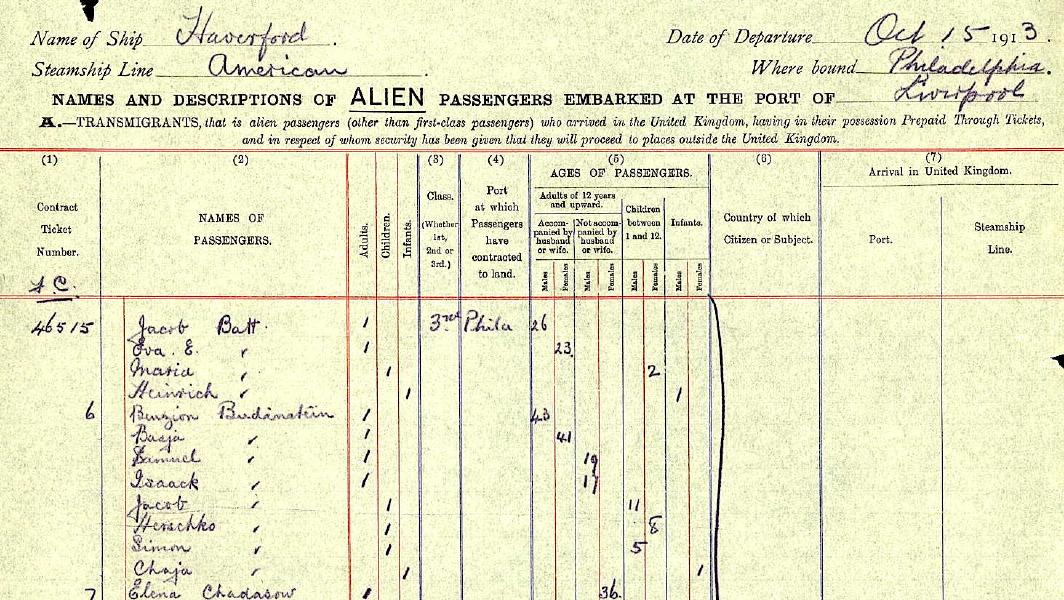 Name of Ship Haverford. Date of Departure Oct. 15 1913.
Steamship Line American. Where bound Philadelphia.
NAMES AND DESCRIPTIONS OF ALIEN PASSENGERS EMBARKED AT THE PORT OF Liverpool
A.—TRANSMIGRANTS, that is alien passengers (other than first-class passengers) who arrived in the United Kingdom, having in their possession Prepaid Through Tickets,
and in respect of whom security has been given that they will proceed to places outside the United Kingdom.
(1) (2) (3) (4) (5) (6) (7)
Contract Ticket Number.
NAMES OF PASSENGERS.
Adults.
Children.
Infants.
Class. (Whether 1st, 2nd or 3rd.)
Port at which Passengers have contracted to land.
AGES OF PASSENGERS.
Adults of 12 years and upward.
Accompanied by husband or wife.
Not accompanied by husband or wife.
Children between 1 and 12.
Infants.
Males Females Males Females Males Females Males Females
Country of which Citizen or Subject.
Arrival in United Kingdom.
Port.
Steamship Line.
46515 Jacob Batt 1 3rd Phila 26
Eva. E. " 1 23
Maria " 1 2
Heinrich " 1 1
6 Benzion Budinstein 1 43
Basja " 1 41
Samuel " 1 19
Isaack " 1 17
Jacob " 1 11
Herschko " 1 8
Simon " 1 5
Chaja " 1 1
7 Elena Chadasow 1 36